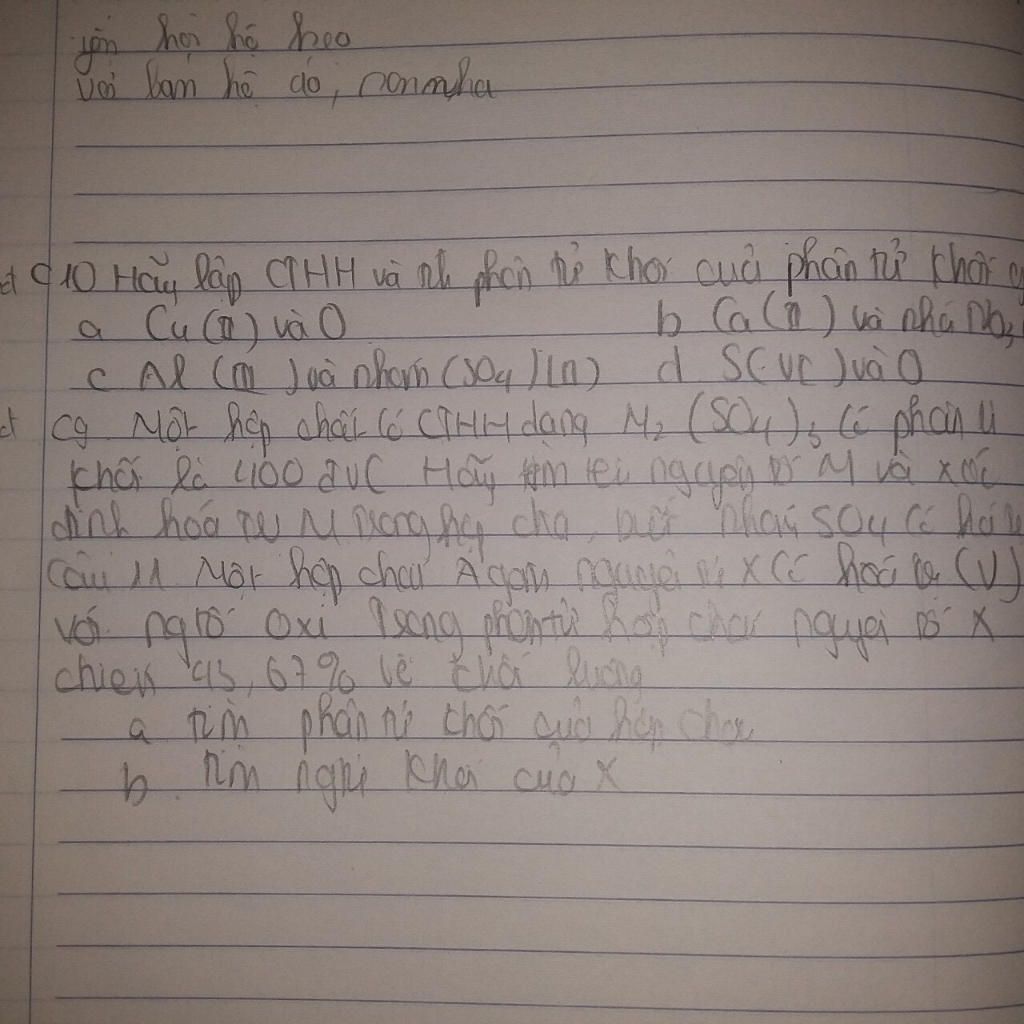 hội hộ heo
với bạn hê đó, nonnha
C10 Hãy lập CTHH và tính phân tử khối của phân tử khối
a Cu(II) và O b Ca(II) và nhóm NO3
c Al (III) và nhóm (SO4)(II) d S(VI) và O
C9 Một hợp chất có CTHH dạng M2 (SO4)3 Có phân tử
khối là 400 đvC Hãy tìm tên nguyên tố M và xác
định hoá trị M trong hợp chất, biết nhóm SO4 có hoá
Câu 11 Một hợp chất A gồm nguyên tố X Có hoá trị (V)
với ng tố oxi Trong phân tử hợp chất nguyên tố X
chiếm 43,67% về khối lượng
a tìm phân tử khối của hợp chất
b tìm ng khối của X